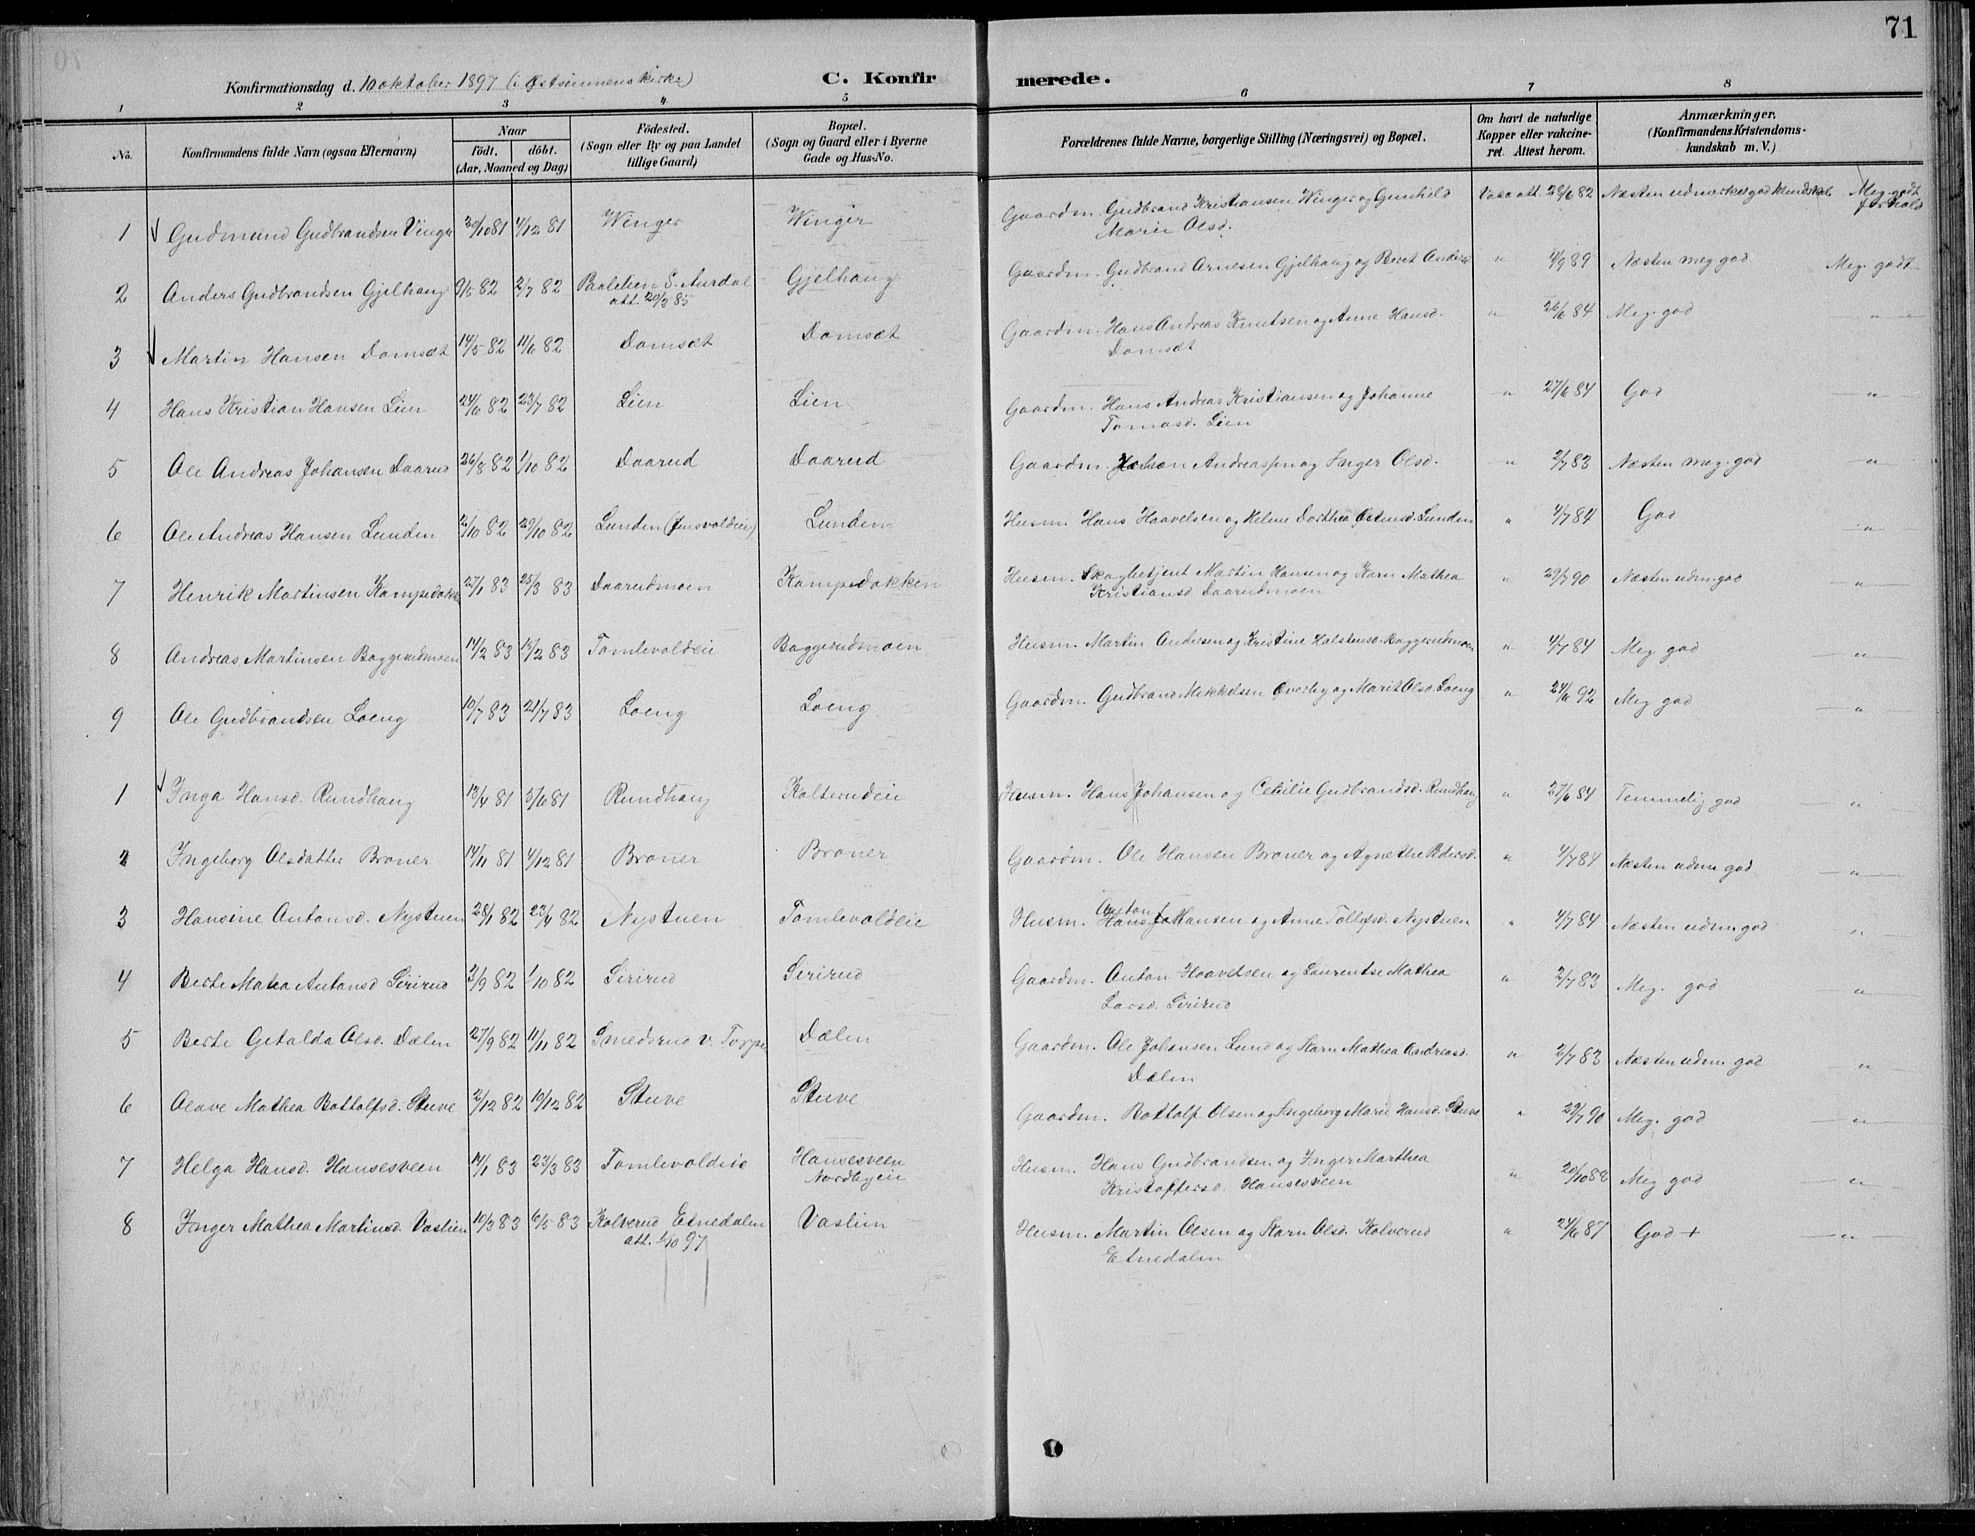 71
Konfirmationsdag d. 10 oktober 1897 (i Østsinnens Kirke)
C. Konfirmerede.
1 2 3 4. 5 6 7 8
No. Konfirmandens fulde Navn (ogsaa Efternavn)
Naar
födt. döbt.
(Aar, Maaned og Dag)
Födested.
(Sogn eller By og paa Landet
tillige Gaard)
Bopæl.
(Sogn og Gaard eller i Byerne
Gade og Hus-No.
Forældrenes fulde Navne, borgerlige Stilling (Næringsvei) og Bopæl.
Om havt de naturlige
Kopper eller vakcine-
ret. Attest herom.
Anmærkninger.
(Konfirmandens Kristendoms-
kundskab m. V.)
1 Gudmund Gudbrandsen Vinger 4/12 81 Winger Winger Gaardm. Gudbrand Kristiansen Winger og Gunhild Vacc att. 28/6 82 Næsten udmerket god Kundskab Meg. godt
Marie Olsd. forhold
2 Anders Gudbrandsen Gjelhaug 9/5 82 2/7 82 S. Aurdal Gjelhaug Gaardm. Gudbrand Arnesen Gjelhaug og Beret Andersd " 4/9 89 Næsten meg god Meg. godt
att. 20/3 85
3 Martin Hansen Domsæt 14/5 82 11/6 82 Domsæt Domsæt Gaardm. Hans Andreas Knutsen og Anne Hansd. " 26/6 84 Meg. god " "
Domsæt
4 Hans Kristian Hansen Lien 24/6 82 23/7 82 Lien Lien Gaardm. Hans Andreas Kristiansen og Johanne " 27/6 84 God "
Tomasd. Lien
5 Ole Andreas Johansen Daarud 26/8 82 1/10 82 Daarud Daarud Gaardm. Johan Andreassen og Inger Olsd. " 2/7 83 Næsten meg. god "
6 Ole Andreas Hansen Lunden 2/10 82 29/10 82 Lunden Lunden Husm. Hans Haavelsen og Helene Dorthea Ostensd. Lunden " 4/7 84 God "
7 Henrik Martinsen Kampedokken 27/1 83 25/3 83 Daarudmoen Kampedokken Husm. Skogbetjent Martin Hansen og Karn Mathea " 29/7 90 Næsten udm god "
Kristiansd Daarudmoen
8 Andreas Martinsen Baggerudmoen 14/2 83 Tomlevoldeie Baggerudmoen Husm. Martin Andersen og Kristine Halstensd. Baggerudmoen " 4/7 84 Meg god "
9 Ole Gudbrandsen Loeng 10/7 83 21/7 83 Loeng Loeng Gaardm. Gudbrand Mikkelsen Overby og Marit Olsd. Loeng " 92 Meg god "
1 Inga Hansd. Rundhaug 5/6 81 Rundhaug Kalterudeie Husm. Hans Johansen og Cecilie Gudbrandsd. Rundhaug " 27/6 84 Temmelig god "
2 Ingeborg Olsdatter Broner 14/11 81 4/12 81 Broner Broner Gaardm. Ole Hansen Broner og Agnethe Pedersd. " 4/7 84 Næsten udm god "
3 Hansine Antonsd. Nystuen 28/1 82 23/4 82 Nystuen Tomlevoldeie Husm. Anton Hansen og Anne Tollefsd. Nystuen " 4/7 84 Næsten udm. god "
4 Berte Matea Antonsd Sirirud 3/9 82 1/10 82 Sirirud Sirirud Gaardm. Anton Haavelsen og Laurentse Mathea " 2/7 83 Meg. god "
Larsd. Sirirud
5 Berte Getalda Olsd. Dælen 27/9 82 11/11 82 Smedsrud v. Torpe Dælen Gaardm. Ole Johansen Lund og Karn Mathea Andreasd. " 2/7 83 Næsten udm god "
Dælen
6 Olave Mathea Bottolfsd. Stuve 2/12 82 10/12 82 Stuve Stuve Gaardm. Bottolf Olsen og Ingeborg Marie Hansd. Stuve " 29/7 90 Meg. god "
7 Helga Hansd. Hansesveen 14/1 83 23/3 83 Tomlevoldeie Hansesveen Husm. Hans Gudbrandsen og Inger Marthea " 20/10 88 Meg god "
Nordbyeie Kristoffersd. Hansesveen
8 Inger Mathea Martinsd. Vaslien 10/3 83 6/5 83 Kolverud Etnedalen Vaslien Husm. Martin Olsen og Karn Olsd. Kolverud " 24/6 87 God + "
att. 1/10 97 Etnedalen